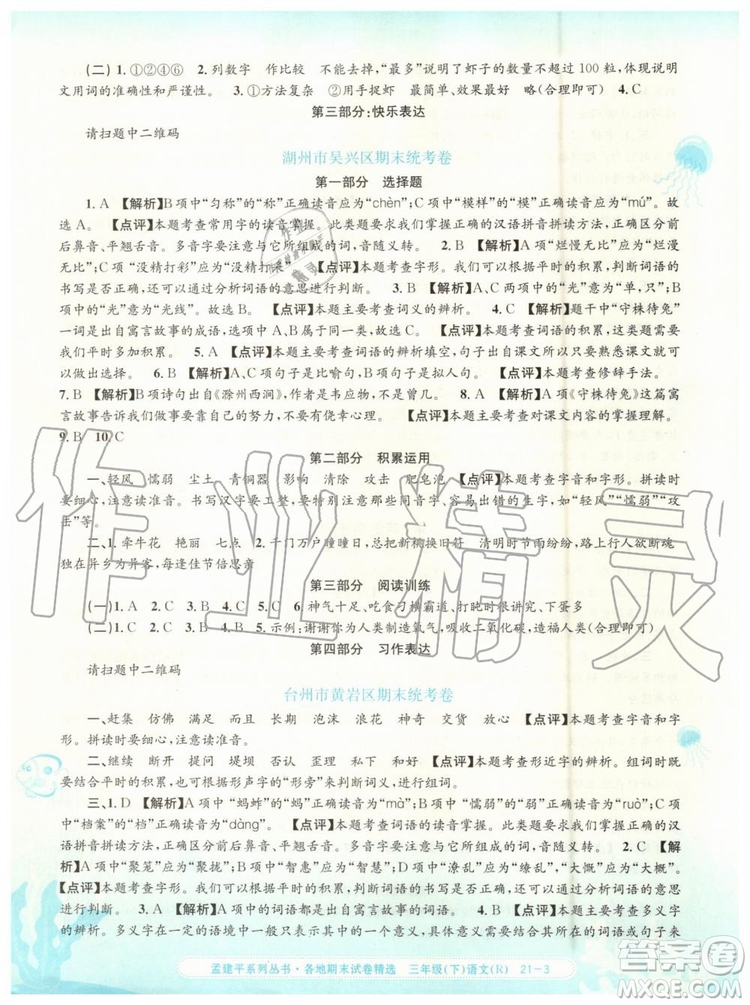 (二)1.①②④⑥　2.列数字　作比较　不能去掉,“最多”说明了虾子的数量不超过100粒,体现说明
文用词的准确性和严谨性。　3.①方法复杂　②用手捉虾　最简单、效果最好　略(合理即可)　4.C
第三部分:快乐表达
请扫题中二维码
湖州市吴兴区期末统考卷
第一部分　选择题
1.A　【解析】B项中“匀称”的“称”正确读音应为“chèn”;C项中“模样”的“模”正确读音应为“mú”。故
选A。　【点评】本题考查常用字的读音掌握。此类题要求我们用正确的汉语拼音拼读方法,正确区分前
后鼻音、平翘舌音。多音字读音要注意与它所组成的词语意义对应。　2.B　【解析】A项“烂慢无比”应为“烂漫
无比”;C项“没精打彩”应为“没精打采”。　【点评】本题考查字形。此类题要求我们根据平时的积累,根据词语
的书写是否正确和词语的意思进行判断。　3.B　【解析】A、C两项中的“只”的意思为“单,只”;B项
中“光”的意思为“光线”。故选B。　【点评】本题主要考查词义的辨析。　4.C　【解析】题干中“守株待兔”
一词是出自寓言故事的成语,选项中只有C项与之对应。　【点评】本题主要考查词语的积累,要求我们在
平时的学习上多加积累。　5.A　【点评】本题考查词语的辨析填空,句子出自课文,可以在熟悉课文文段的
基础上做出选择。　6.C　【解析】A、B两个句子是比喻句,C项句子是拟人句。　【点评】本题考查修辞手法。
7.B　【解析】B项诗句出自《滁州西涧》,作者是韦应物,不是王维。　8.A　【解析】《守株待兔》这篇寓
言故事告诉我们做事情要脚踏实地,不能有侥幸心理。　【点评】本题主要考查对课文内容的掌握理解。
9.B　10.C
第二部分　积累运用
一、轻风　懦弱　尘土　青铜器　影响　清除　攻击　肥皂泡　【点评】本题考查字音和字形。拼读时
要细心,注意读准音。书写汉字要工整,要特别注意那些平时容易出错的生字,如“轻风”“懦弱”“攻
击”等。
二、1.牵牛花　艳丽　七点　2.千门万户曈曈日,总把新桃换旧符　清明时节雨纷纷,路上行人欲断魂
独在异乡为异客,每逢佳节倍思亲
第三部分　阅读训练
(一)1.A　2.C　3.B　4.C　5.C　6.神气十足、吃食刁横霸道、打枕时很讲究、下蛋多
(二)1.C　2.C　3.A　4.B　5.示例:谢谢你为人类制造氧气,吸收二氧化碳,造福人类(合理即可)
第四部分　习作表达
请扫题中二维码
台州市黄岩区期末统考卷
一、赶集　仿佛　满足　而且　长期　泡沫　浪花　神奇　交货　放心　【点评】本题考查字音和字
形。拼读时要细心,注意读准音。
二、继续　断开　提问　堤坝　否认　歪歪　影片　惊慌　【点评】本题考查形近字的辨析。组词时
要结合平时的积累,根据形声字的“形旁”来判断词义,进行组词。
三、1.D　【解析】A项中“蚂蚱”的“蚂”正确读音应为“mà”;B项中“懦弱”的“弱”正确读音应为“ruò”;C
项中“档案”的“档”正确读音应为“dàng”。　【点评】本题考查词语的读音掌握。此类题要求我们用正
确的汉语拼音拼读方法,正确区分前后鼻音、平翘舌音。多音字的读音要注意与词义对应。　2.C　【解
析】A项中“聚笼”应为“聚拢”;B项中“智惠”应为“智慧”;D项中“潦乱”应为“缭乱”,“大慨”应为“大概”。
【点评】本题考查字形。此类题要求我们根据平时的积累,根据词语的书写是否正确和词语的意思
进行判断。　3.A　【解析】A项中的词语都是出自寓言故事的词语。　4.B　【点评】本题主要考查多义字
的辨析。多义字在一定的语境中只有一个意思,要结合词语的意义进行判断。
孟建平系列丛书·各地期末试卷精选　三年级(下)语文(R)　21-3
作业精灵